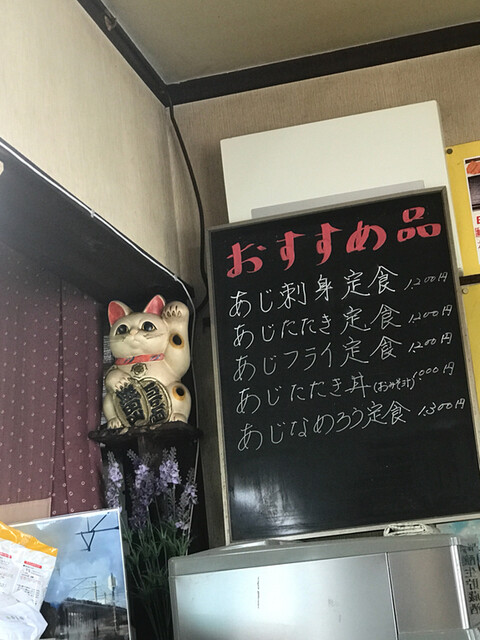 おすすめ品
あじ刺身定食 1,200円
あじたたき定食 1,200円
あじフライ定食 1,200円
あじたたき丼(おみそ汁) 1,000円
あじなめろう定食 1,300円